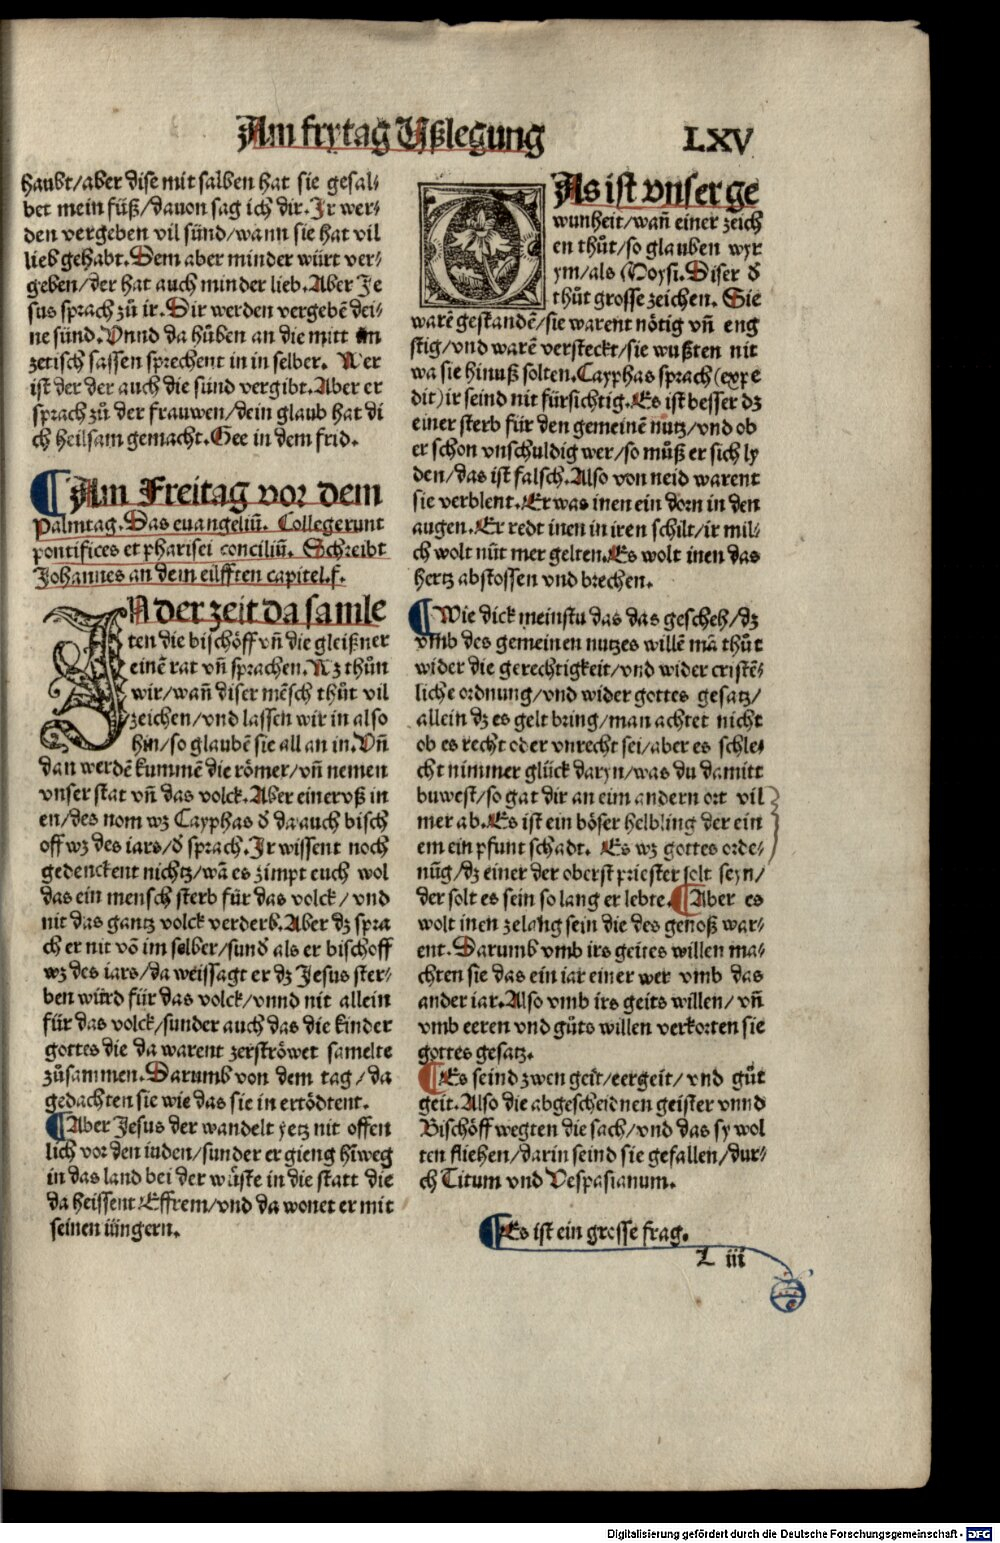 Am frytag Vßlegung
LXV
haubt/aber dise mit salben hat sie gesal-
bet mein füß/dauon sag ich dir. Jr wer-
den vergeben vil sünd/wann sie hat vil
lieb gehabt. Dem aber minder würt ver-
geben/der hat auch minder lieb. Aber Je
sus sprach zů ir. Dir werden vergebē dei-
ne sünd. Vnnd da hůben an die mitt im
zetisch sassen sprechent in in selber. Wer
ist der der auch die sünd vergibt. Aber er
sprach zů der frauwen/dein glaub hat di
ch heilsam gemacht. Gee in dem frid.
Am Freitag vor dem
Palmtag. Das euangeliū. Collegerunt
pontifices et pharisei conciliū. Schreibt
Johannes an dem eilfften capitel.f.
JN der zeit da samle
ten die bischöff vñ die gleißner
einē rat vñ sprachen. Wz thůn
wir/wañ diser mēsch thůt vil
zeichen/vnd lassen wir in also
hin/so glaubē sie all an in. Vñ
dan werdē kummē die römer/vñ nemen
vnser stat vñ das volck. Aber einer vß in
en/des nom wz Cayphas d̄ da auch bisch
off wz des iars/d̄ sprach. Jr wissent noch
gedenckent nichtz/wā es zimpt euch wol
das ein mensch sterb für das volck/vnd
nit das gantz volck verderb. Aber dz spra
ch er nit vō im selber/sund̄ als er bischoff
wz des iars/da weissagt er dz Jesus ster-
ben würd für das volck/vnnd nit allein
für das volck/sunder auch das die kinder
gottes die da warent zerströwet samelte
zůsammen. Darumb von dem tag/da
gedachten sie wie das sie in ertödtent.
Aber Jesus der wandelt yetz nit offen
lich vor den iuden/sunder er gieng hīweg
in das land bei der wüste in die statt die
da heissent Effrem/vnd da wonet er mit
seinen iüngern.
DAs ist vnser ge
wunheit/wañ einer zeich
en thůt/so glauben wyr
ym/als Moysi. Diser d̄
thůt grosse zeichen. Sie
warē gestandē/sie warent nötig vñ eng
stig/vnd warē versteckt/sie wußten nit
wa sie hinuß solten. Cayphas sprach (expe
dit) ir seind nit fürsichtig. Es ist besser dz
einer sterb für den gemeinē nutz/vnd ob
er schon vnschuldig wer/so můß er sich ly
den/das ist falsch. Also von neid warent
sie verblent. Er was inen ein dorn in den
augen. Er redt inen in iren schilt/ir mil-
ch wolt nüt mer gelten. Es wolt inen das
hertz abstossen vnd brechen.
Wie dick meinstu das das gescheh/dz
vmb des gemeinen nutzes willē mā thůt
wider die gerechtigkeit/vnd wider cristē-
liche ordnung/vnd wider gottes gesatz/
allein dz es gelt bring/man achtet nicht
ob es recht oder vnrecht sei/aber es schle-
cht nimmer glück daryn/was du damitt
buwest/so gat dir an eim andern ort vil
mer ab. Es ist ein böser helbling der ein
em ein pfunt schadt. Es wz gottes orde-
nūg/dz einer der oberst priester solt seyn/
der solt es sein so lang er lebte. Aber es
wolt inen zelang sein die des genoß war-
ent. Darumb vmb irs geites willen ma-
chten sie das ein iar einer wer vmb das
ander iar. Also vmb irs geits willen/vñ
vmb eeren vnd gůts willen verkorten sie
gottes gesatz.
Es seind zwen geit/eergeit/vnd gůt
geit. Also die abgescheidnen geister vnnd
Bischöff wegten die sach/vnd das sy wol
ten fliehen/darin seind sie gefallen/dur-
ch Titum vnd Vespasianum.
Es ist ein grosse frag.
L iii
Digitalisierung gefördert durch die Deutsche Forschungsgemeinschaft - DFG